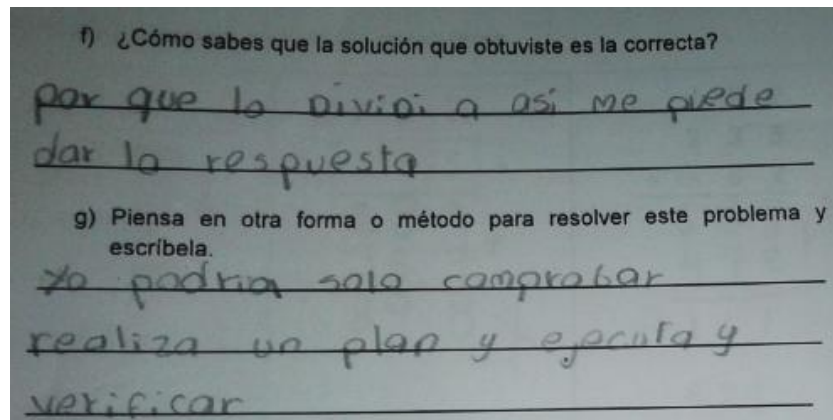 f) ¿Cómo sabes que la solución que obtuviste es la correcta?
por que lo Dividi a asi me puede
dar la respuesta
g) Piensa en otra forma o método para resolver este problema y
escríbela.
Yo podria solo comprobar
realiza un plan y ejecuta y
verificar